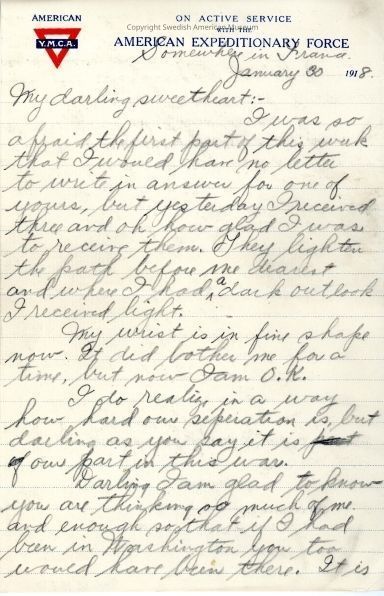 AMERICAN
Y.M.C.A.
ON ACTIVE SERVICE
WITH THE
AMERICAN EXPEDITIONARY FORCE
Copyright Swedish American Museum
Somewhere in France
January 30 1918.
My darling sweetheart:-
I was so
afraid the first part of this week
that I would have no letter
to write in answer for one of
yours, but yesterday I received
three and oh how glad I was
to receive them. They lighten
the path before me dearest
and where I had a dark outlook
I received light.
My wrist is in fine shape
now. It did bother me for a
time, but now I am O.K.
I do realize in a way
how hard our seperation is, but
darling as you say it is
of our part in this war.
Darling I am glad to know
you are thinking so much of me.
and enough so that if I had
been in Washington you too
would have been there. It is